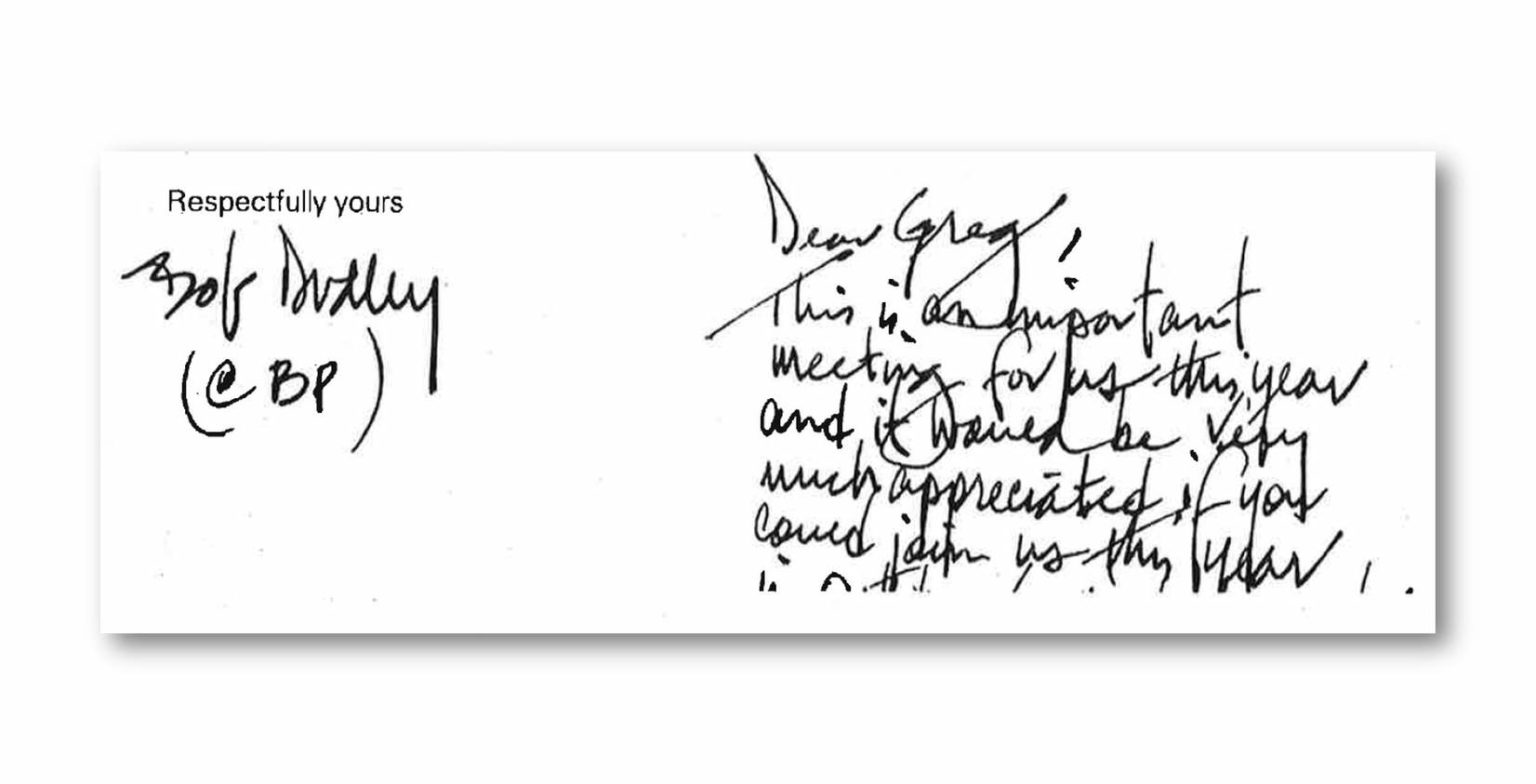 Respectfully yours
Bob Dudley
(@ BP)
Dear Greg,
This is an important
meeting for us this year
and it would be very
much appreciated if you
could join us this year